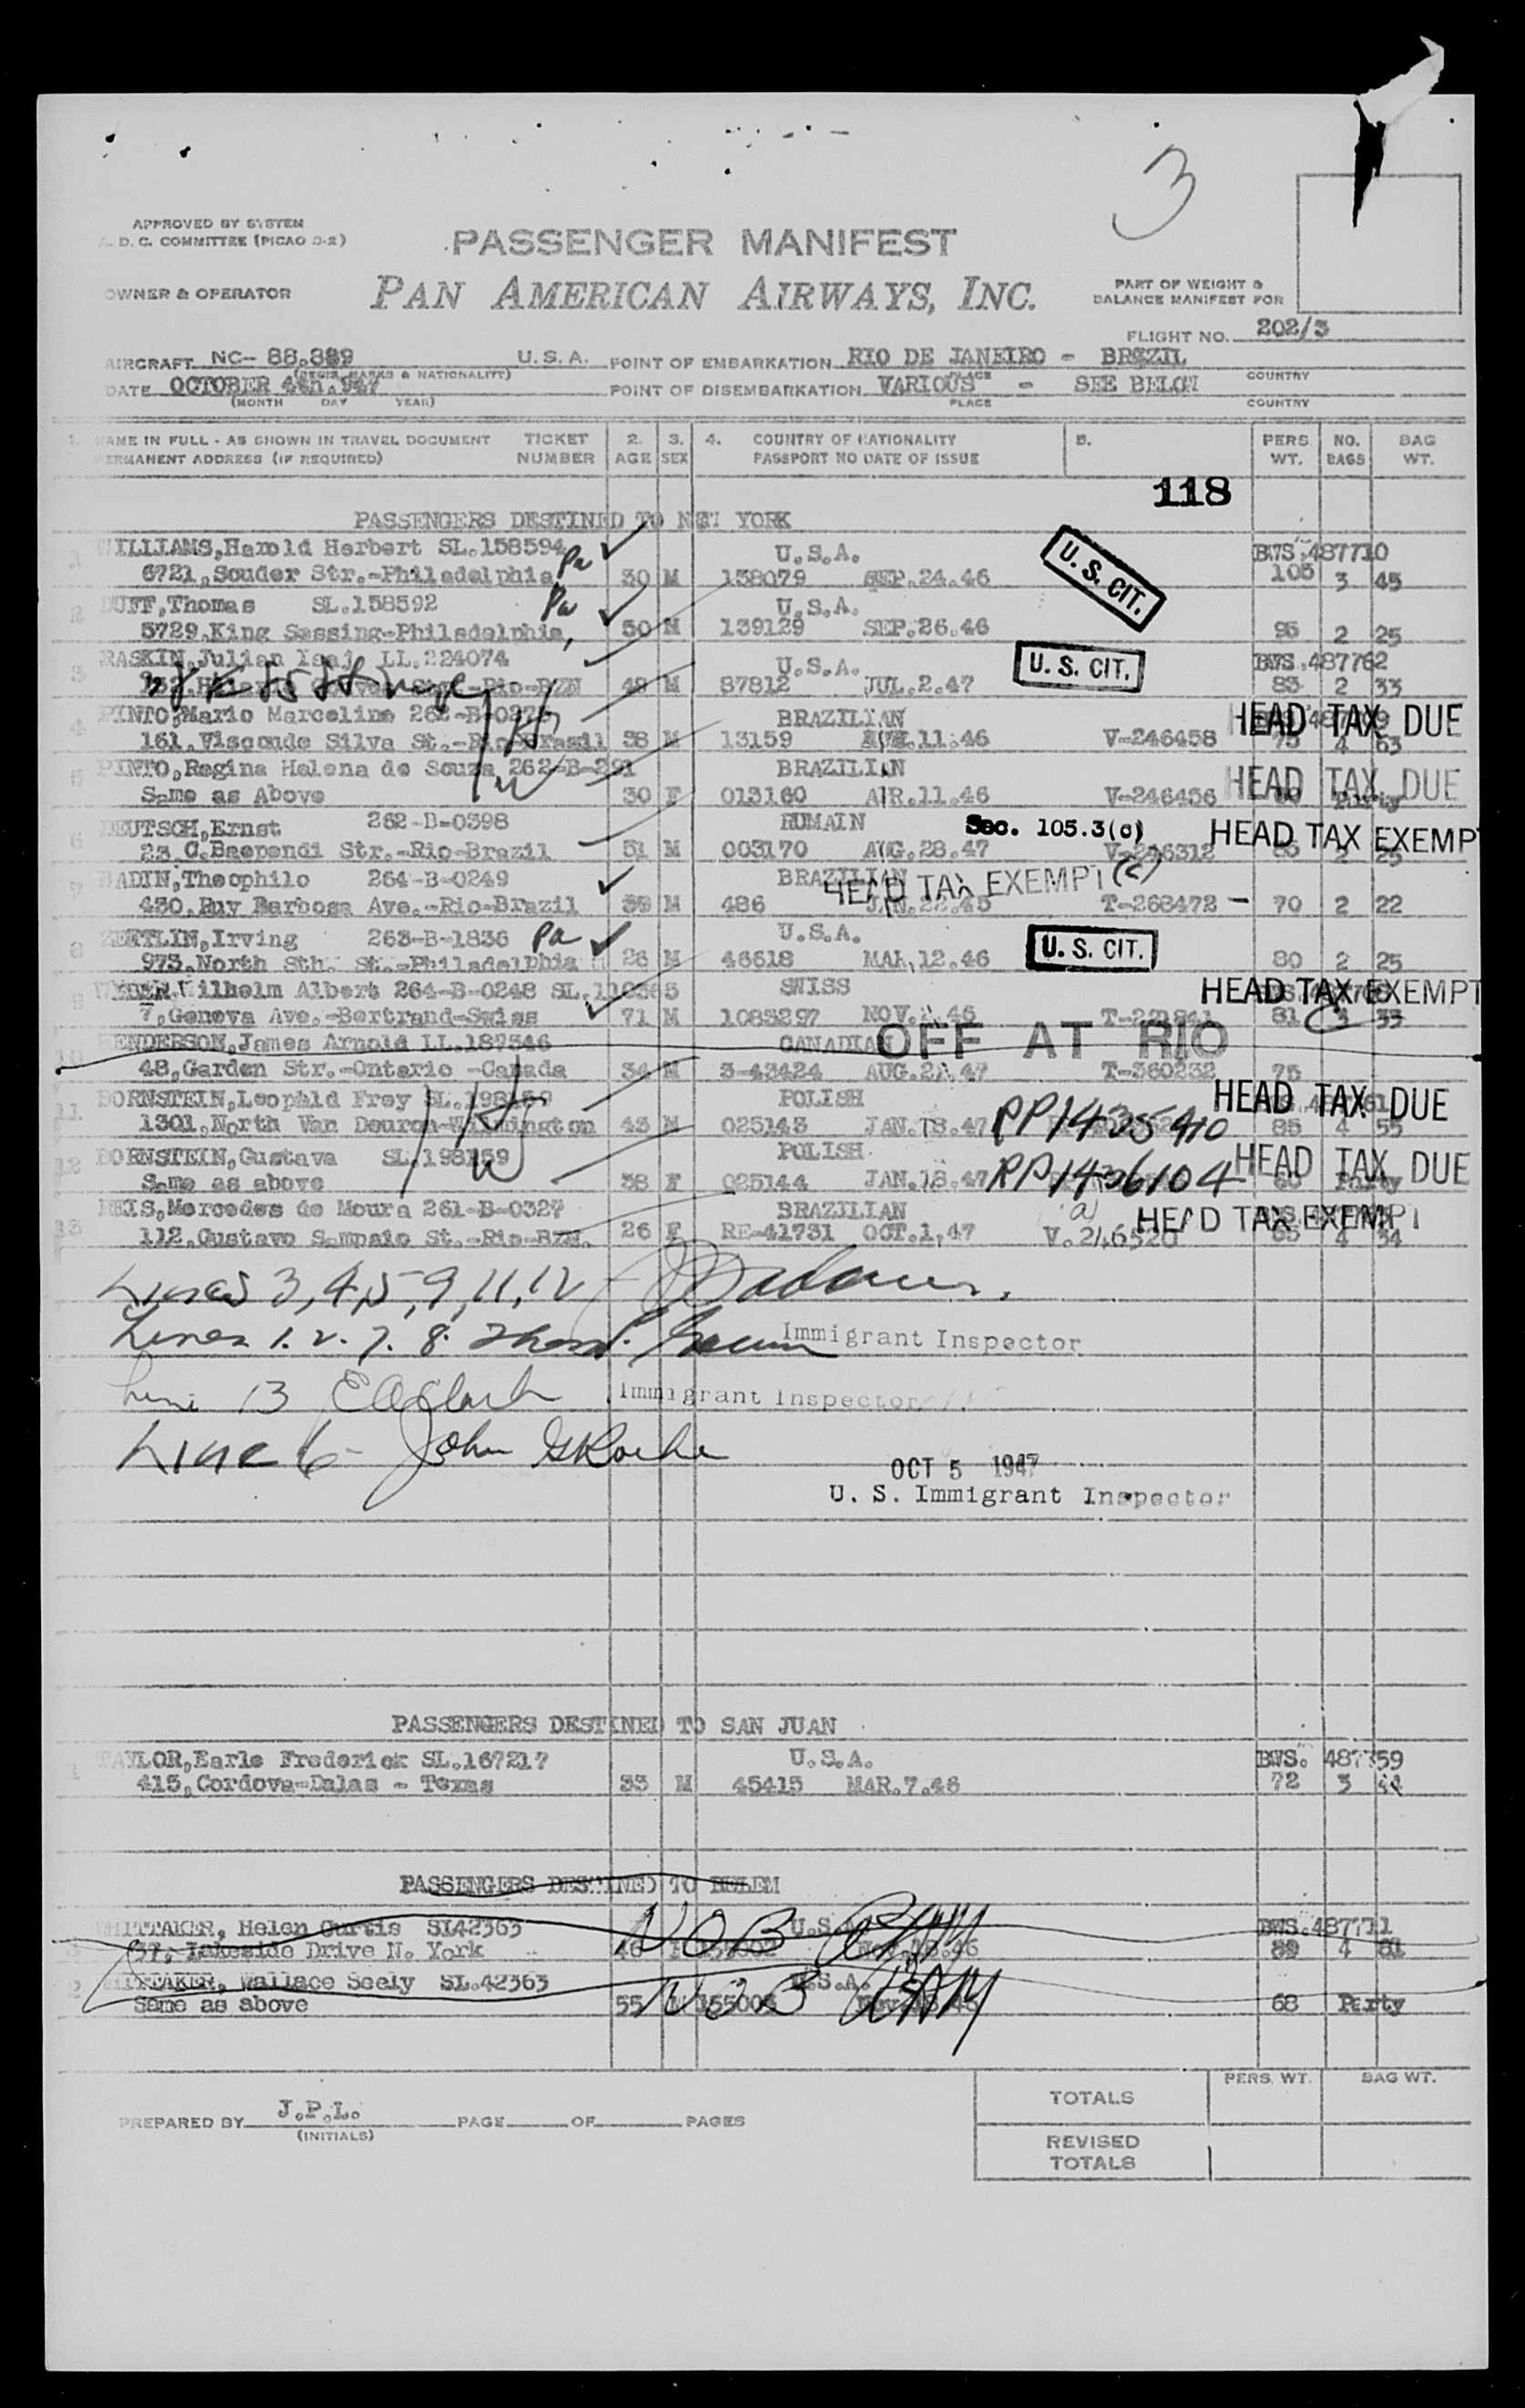 3
APPROVED BY SYSTEM
D. C. COMMITTEE (PICAO D-2)
PASSENGER MANIFEST
OWNER & OPERATOR
PAN AMERICAN AIRWAYS, INC.
PART OF WEIGHT &
BALANCE MANIFEST FOR
FLIGHT NO. 202/3
AIRCRAFT NC- 88. U.S.A. POINT OF EMBARKATION RIO DE JANEIRO - BRAZIL
(REGIS. MARKS & NATIONALITY) PLACE COUNTRY
DATE OCTOBER 4th.947 POINT OF DISEMBARKATION VARIOUS - SEE BELOW
(MONTH DAY YEAR) PLACE COUNTRY
1. NAME IN FULL - AS SHOWN IN TRAVEL DOCUMENT TICKET 2. 3. 4. COUNTRY OF NATIONALITY 5. PERS. NO. BAG
PERMANENT ADDRESS (IF REQUIRED) NUMBER AGE SEX PASSPORT NO DATE OF ISSUE WT. BAGS WT.
118
PASSENGERS DESTINED TO NEW YORK
1 WILLIAMS,Harold Herbert SL.158594 U.S.A. U. S. CIT. BWS.487710
6721,Souder Str.-Philadelphia 30 M 138079 SEP.24.46 105 3 45
2 DUFF,Thomas SL.158592 U.S.A.
5729,King Sessing-Philadelphia, 50 M 139129 SEP.26.46 95 2 25
3 RASKIN,Julian Isaj LL.224074 U.S.A. U. S. CIT. BWS.487762
-Rio-BZN 49 M 87812 JUL.2.47 83 2 33
4 PINTO,Mario Marcelino 262-B- BRAZILIAN HEAD TAX DUE
161,Visconde Silva St.-Rio-Brazil 38 M 13159 11.46 V-246458 75 4 63
5 PINTO,Regina Helena de Souza 262-B-291 BRAZILIAN HEAD TAX DUE
Same as Above 30 F 013160 APR.11.46 V-246456 Party
6 DEUTSCH,Ernst 262-B-0398 RUMAIN Sec. 105.3(c) HEAD TAX EXEMPT
23,C.Baependi Str.-Rio-Brazil 51 M 003170 AUG.28.47 V-246312 2 25
7 BADIN,Theophilo 264-B-0249 BRAZILIAN HEAD TAX EXEMPT (c)
430,Ruy Barbosa Ave.-Rio-Brazil 39 M 486 JAN.22.45 T-268472 - 70 2 22
8 ZEITLIN,Irving 263-B-1836 U.S.A. U. S. CIT.
973,North 5th. St.-Philadelphia 26 M 46618 MAR,12.46 80 2 25
9 Wilhelm Albert 264-B-0248 SL. SWISS HEAD TAX EXEMPT
7,Geneva Ave.-Bertrand-Swiss 71 M 1083297 NOV. .46 T-221841 81 3 33
10 HENDERSON,James Arnold LL.187346 CANADIAN OFF AT RIO
48,Garden Str.-Ontario -Canada 34 M 3-43424 AUG.2 .47 T-360232 75
11 BORNSTEIN,Leopold Frey SL.198159 POLISH HEAD TAX DUE
1301,North Van Deuron-Wilmington 43 M 025143 JAN.18.47 RP1435410 85 4 55
12 BORNSTEIN,Gustava SL.198159 POLISH HEAD TAX DUE
Same as above 38 F 025144 JAN.18.47 RP1436104 60 Party
13 REIS,Mercedes de Moura 261-B-0327 BRAZILIAN (a) HEAD TAX EXEMPT
112,Gustavo Sampaio St.-Rio-BZN. 26 F RE-41731 OCT.1,47 V.246520 4 34
Lines 3,4,5,9,11,12
Lines 1.2.7.8. Immigrant Inspector
Line 13 E A Clark Immigrant Inspector
Line 6 - John G Roche
OCT 5 1947
U. S. Immigrant Inspector
PASSENGERS DESTINED TO SAN JUAN
1 TAYLOR,Earle Frederick SL.167217 U.S.A. BWS. 487359
415,Cordova-Dalas - Texas 33 M 45415 MAR.7.46 72 3
PASSENGERS DESTINED TO BELEM
WHITTAKER, Helen Curtis SL42363 NOB U.S.A. BWS.487711
37,-Lakeside Drive N. York 46 F 155002 Nov.18.46 89 4 81
2 WHITTAKER, Wallace Seely SL.42363 NOB U.S.A.
Same as above 55 M 68 Party
PREPARED BY J.P.L. PAGE OF PAGES
(INITIALS)
PERS. WT. BAG WT.
TOTALS
REVISED
TOTALS